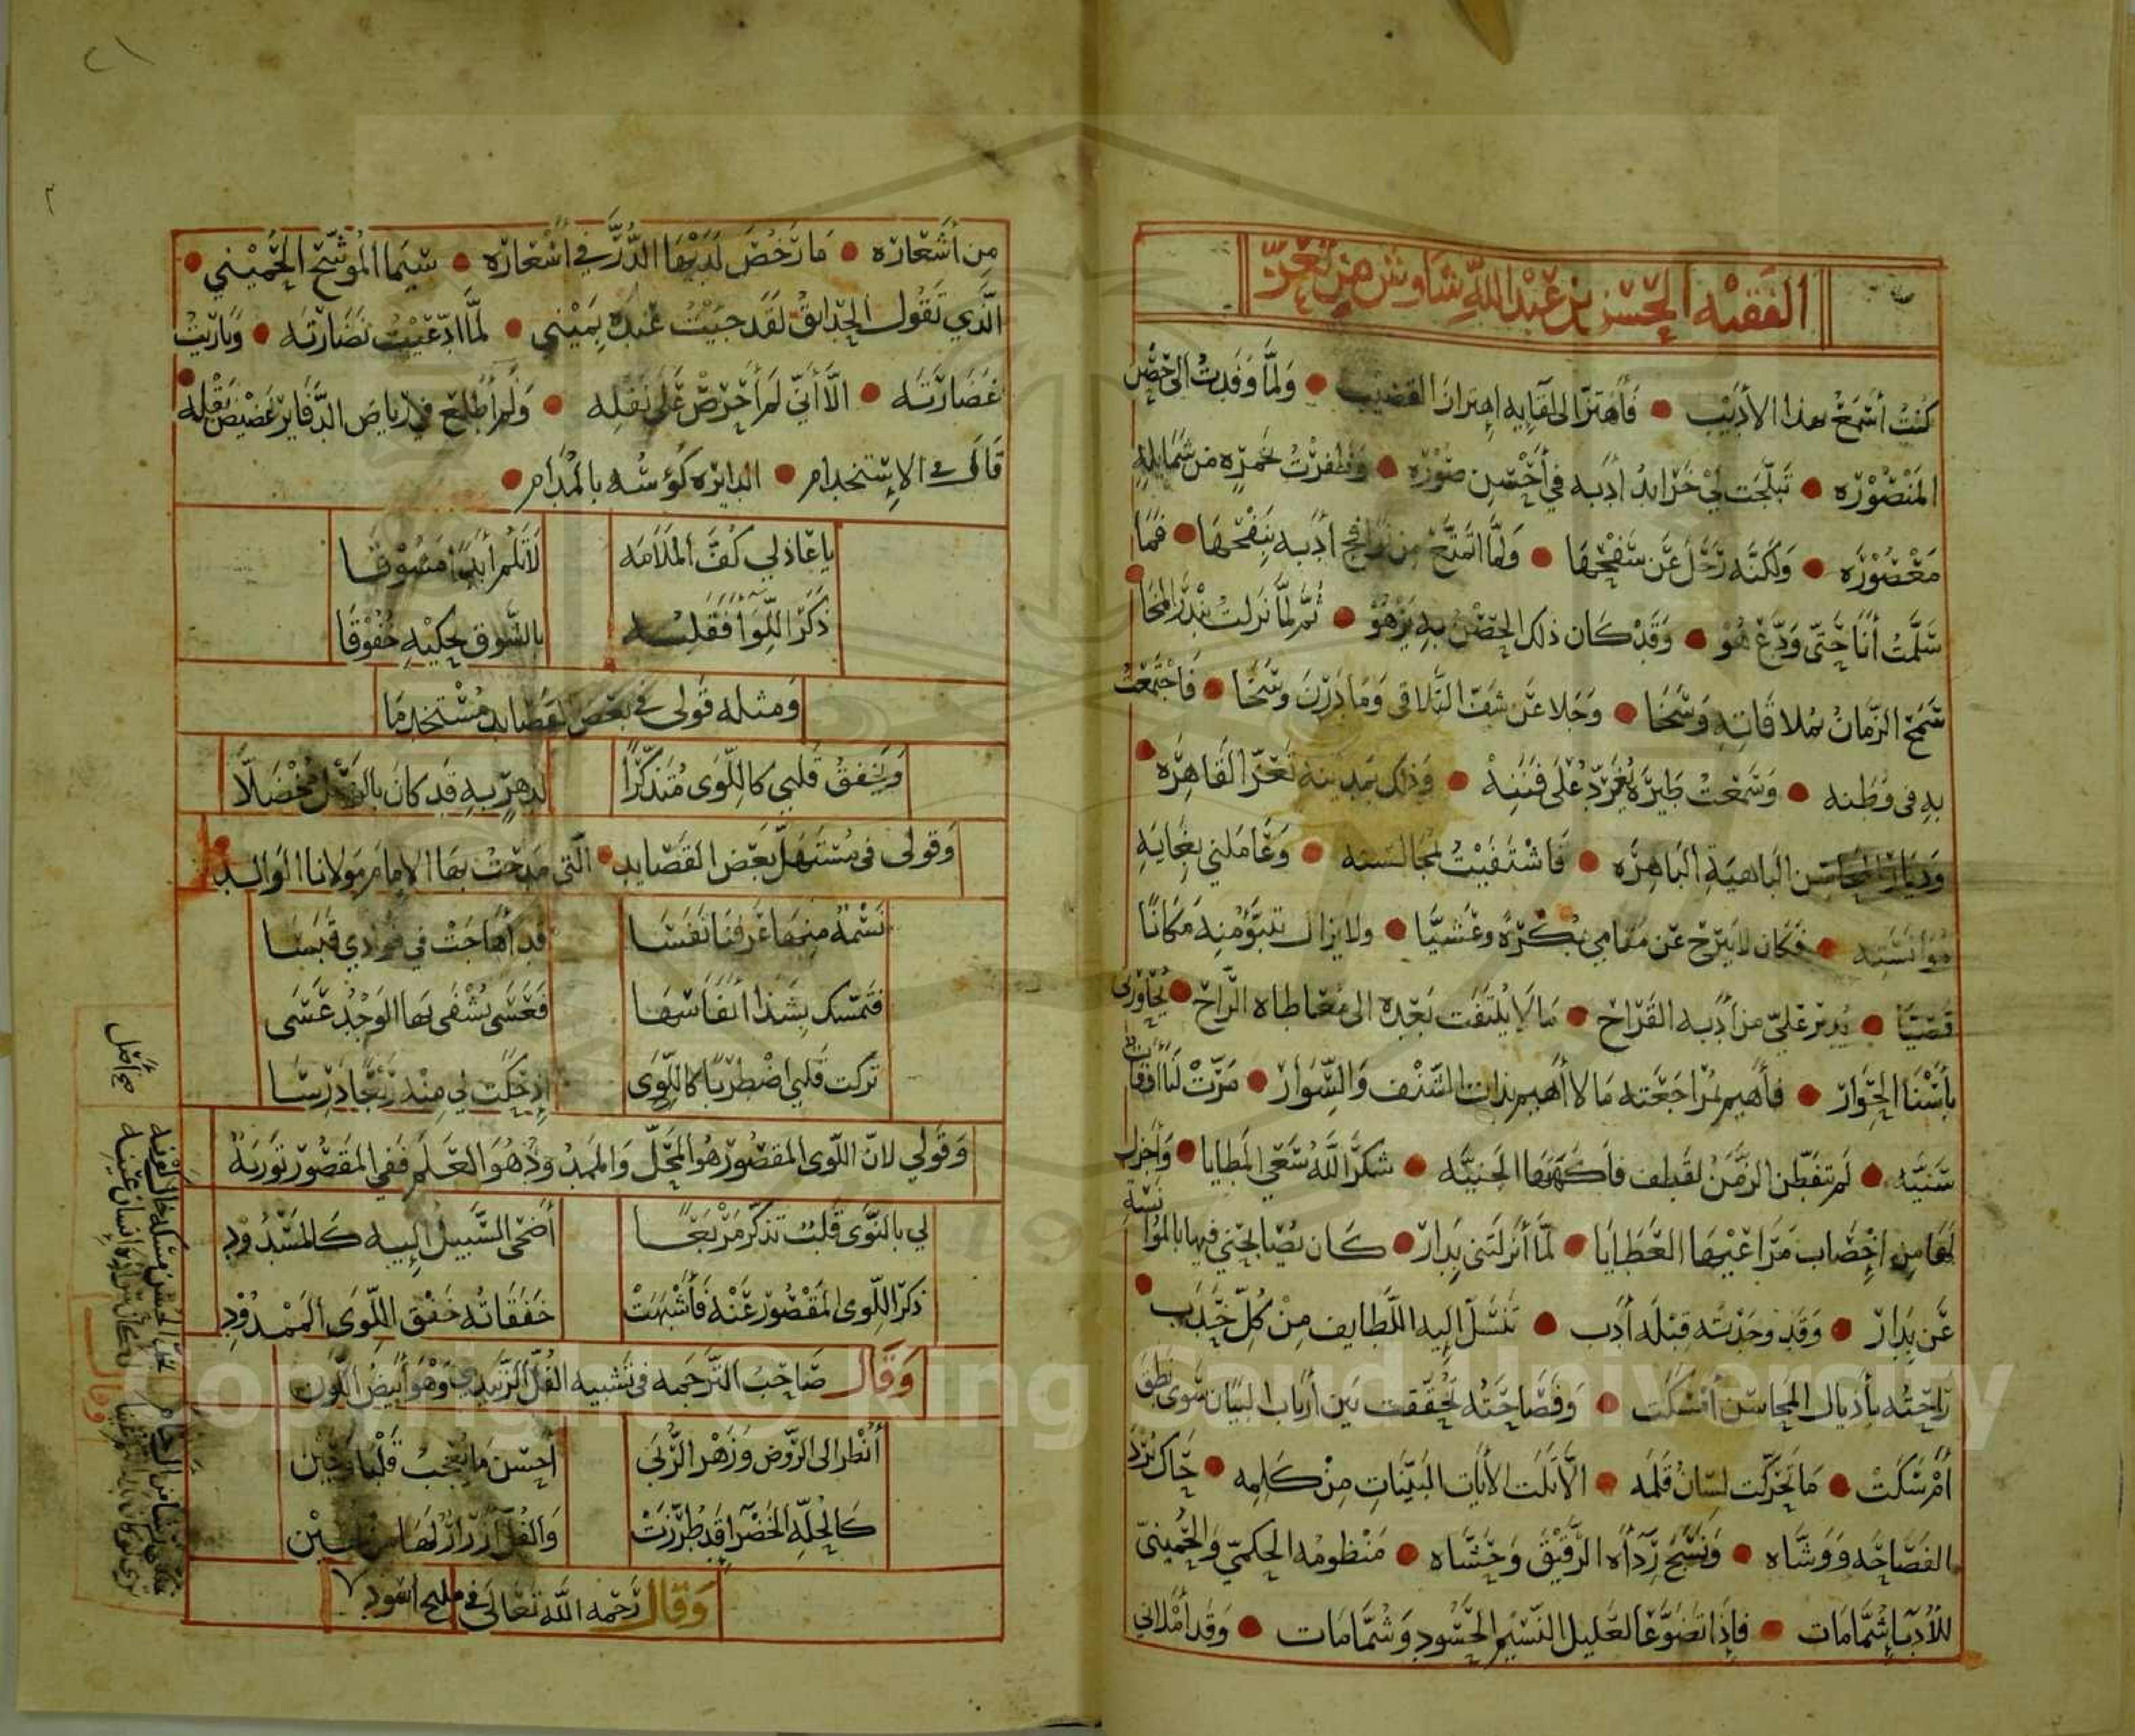 الفقيه الحسن بن عبد الله شاوش من تعز
كُنْتُ أَسْمَعُ بهذا الأديب • فأهتزّ الى لقايه اهتزاز القضيب • ولمّا وفدتُ الى حصن
المنصُوره • تبلّجت لي خرايدُ أدبه في أحسن صوره • وظفرتُ بخمرةٍ من شمايله
معصُوره • ولكنّه رحل عن سفحها • ولمّا اتمتّع من أدبه بنفحها • فما
سلّمتُ أنا حتّى ودّع هُو • وقد كان ذلك الحصن به يزهُو • ثمّ لمّا نزلت بندر المخا
سمح الزّمانُ بملاقاته وسخا • وجلا عن شفّ التلاقي وما درن وسخا • فاجتمعتُ
به في وطنه • وسمعت طيره يُغرّد على فننه • وذلك بمدينة تعزّ القاهره
وديار المحاسن الباهية الباهره • فاشتفيتُ بمجالسته • وعاملني بغاية
موانسته • فكان لا يبرح عن مقامي بكرةً وعشيّا • ولا يزال تبوّؤ منه مكانًا
قصيّا • يدير عليّ من أدبه القراح • ما لا يلتفت بعده الى معاطاه الرّاح • يجاورني
بأسنا الحوار • فأهيم لمراجعته ما لا أهيم بذات الشّنف والسّوار • مرّت لنا أوقات
سنيّه • لم تفطن الزمن لقطف فاكهتها الجنيّه • شكر الله سعي المطايا • وأجزل
لها من اخصاب مراعيها العطايا • لمّا أنزلتني بدار • كان يُصابحني فيها بالموانسة
عن بدار • وقد وجدته قبلة أدب • تنسل إليه اللّطايف من كلّ حدب
راحتُه بأذيال المحاسن أمسكت • وفصاحتُه تحقّقت بين أرباب البيان سوى نطق
أم سكت • ما تحرّكت لسانُ قلمه • الّا تلت الأيات البيّنات من كلمه • حاك برد
الفصاحه ووشّاه • ونسج رداه الرّقيق وحشّاه • منظومه الحكمي والحُميني
للأدباء شمّامات • فإذا تضوّعا لعليل النّسيم الحسُود وشمّا مات • وقد أملاني
من أشعاره • ما رخُص لديها الدّرّ في اسعاره • سيّما المُوشّح الحُميني
الّذي تقول الحدايق لقد جنيت غيده بيميني • لمّا ادّعيت نضارته • وباريتُ
غضارته • الّا أنّي لم أحرص على نقله • ولم أطّلع في رياض الدّفاتر غضيض بقله
قال في الاستخدام • الدايره كؤسُه بالمُدام
يا عاذلي كُفّ الملامه   لا تلم أبدًا مشُوقا
ذكر اللّوا فقلبه   بالشّوق يحكيه خُفُوقا
ومثله قولي في بعض قصايد مُستخدما
ويخفقُ قلبي كاللّوى مُتذكّرًا   لدهرٍ به قد كان بالوصل مُخضلّا
وقولي في مُستهلّ بعض القصايد • الّتي مدحتُ بها الامام مولانا الوالد
نسمةٌ منها عرفنا نفسا   قد أهاجت في فؤادي قبسا
فتمسّك بشذا أنفاسها   فعسى يُشفى بها الوجدُ عسى
تركت قلبي اضطربًا كاللّوى   اذ حكت لي منه ربعًا درسا
وقولي لانّ اللّوى المقصُور هُو المحلّ والممدُود هُو العلم ففي المقصُور تورية
لي بالنّوى قلبٌ تذكّر مربعًا   أضحى السّبيل إليه كالمسدُود
ذكر اللّوى المقصُور عنه فأشبهت   خفقاته خفق اللّوى الممدُود
وقال صاحبُ الترجمه في تشبيه الفُلّ الزّبيدي وهو أبيض اللّون
أُنظر الى الرّوض وزهر الرُّبى   أحسن ما يُعجبُ قلبًا وعين
كالحلّه الخضرا قد طُرّزت   والفُلّ أزرارٌ لها من لُجين
وقال رحمه الله تعالى في مليح اسود
صح أصل
وقال